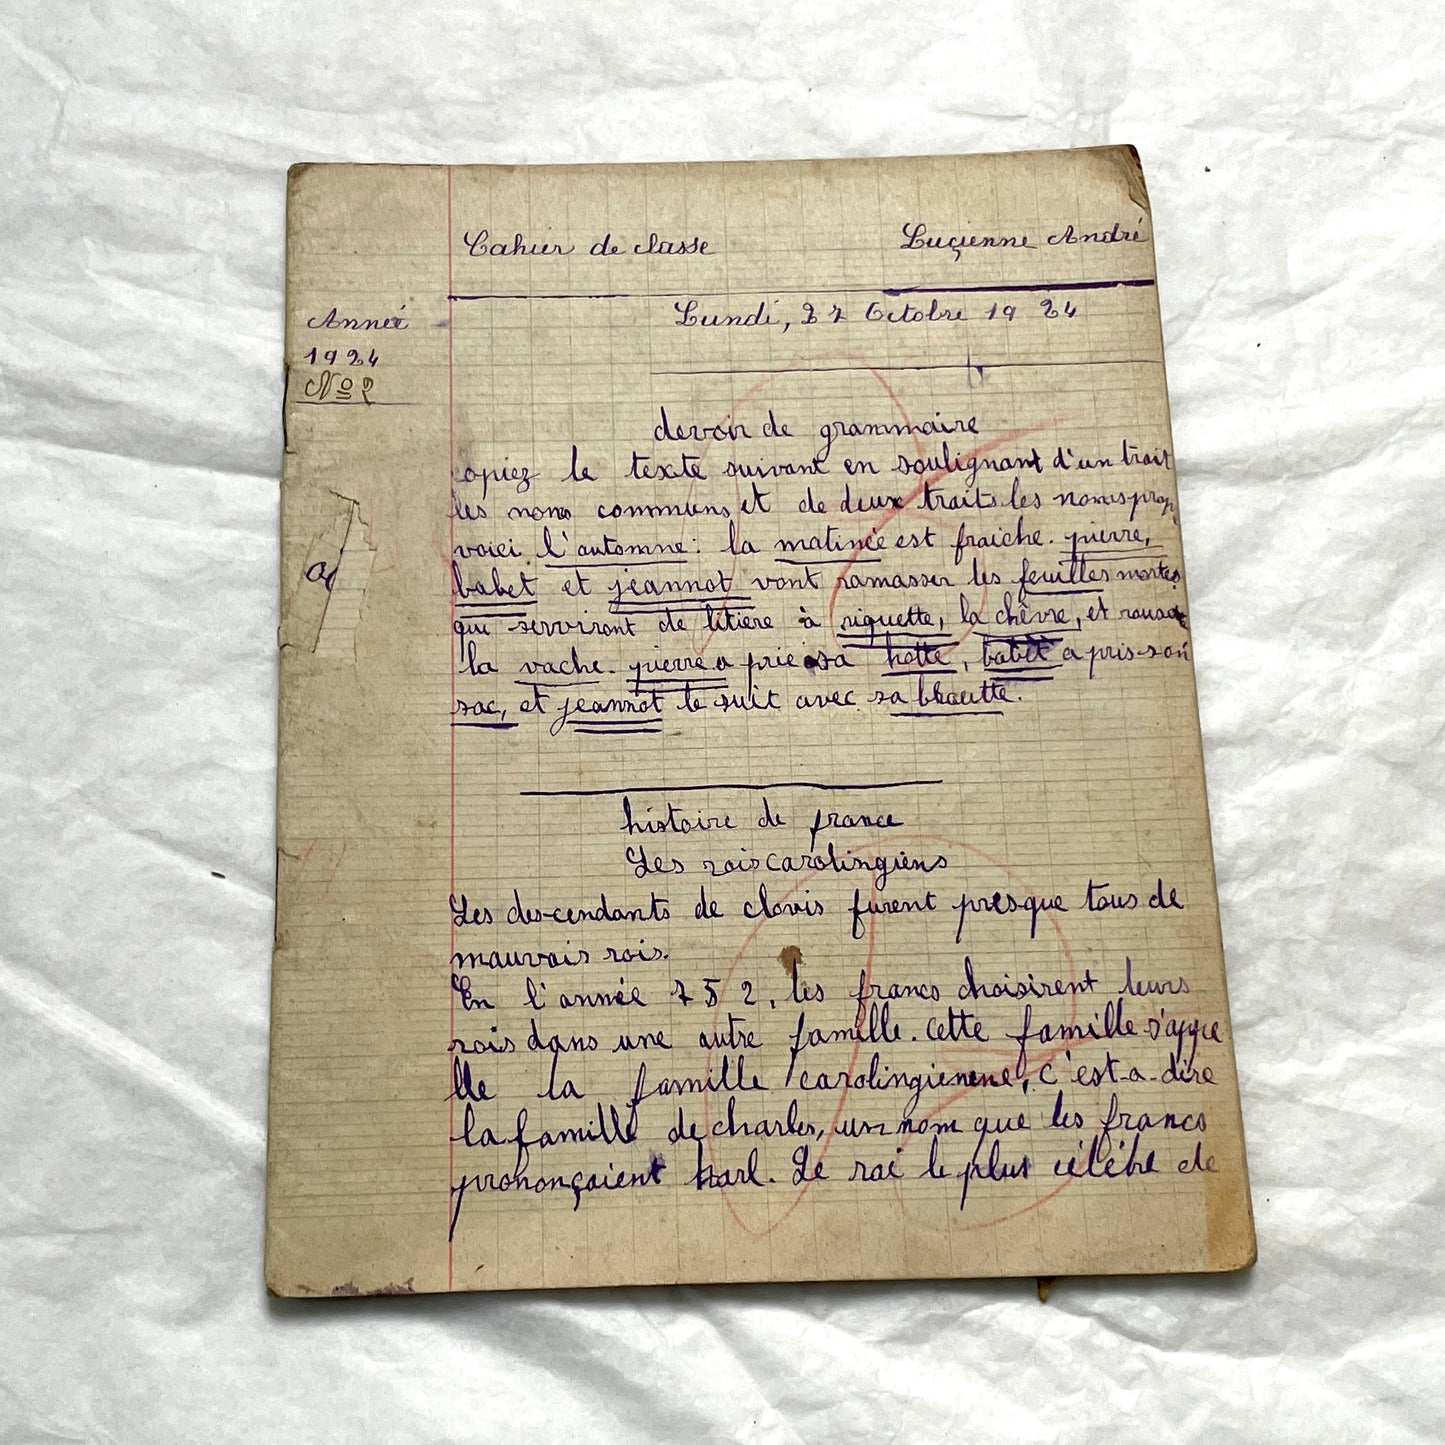 Cahier de classe Luçienne André
Année
1924
№ 2
Lundi, 27 Octobre 19 24
devoir de grammaire
copiez le texte suivant en soulignant d'un trait
les noms communs et de deux traits les noms prop
voici l'automne: la matinée est fraiche. pierre,
babet et jeannot vont ramasser les feuilles mortes
qui serviront de litière à riquette, la chêvre, et
la vache. pierre a prie sa hotte, babet a pris son
sac, et jeannot le suit avec sa
histoire de france
Les rois carolingiens
Les descendants de clovis furent presque tous de
mauvais rois.
En l'année 752, les francs choisirent leurs
rois dans une autre famille. cette famille s'appe
lle la famille carolingienene, c'est-a-dire
la famille de charles, un nom que les francs
prononçaient karl. Le roi le plus célèbre de